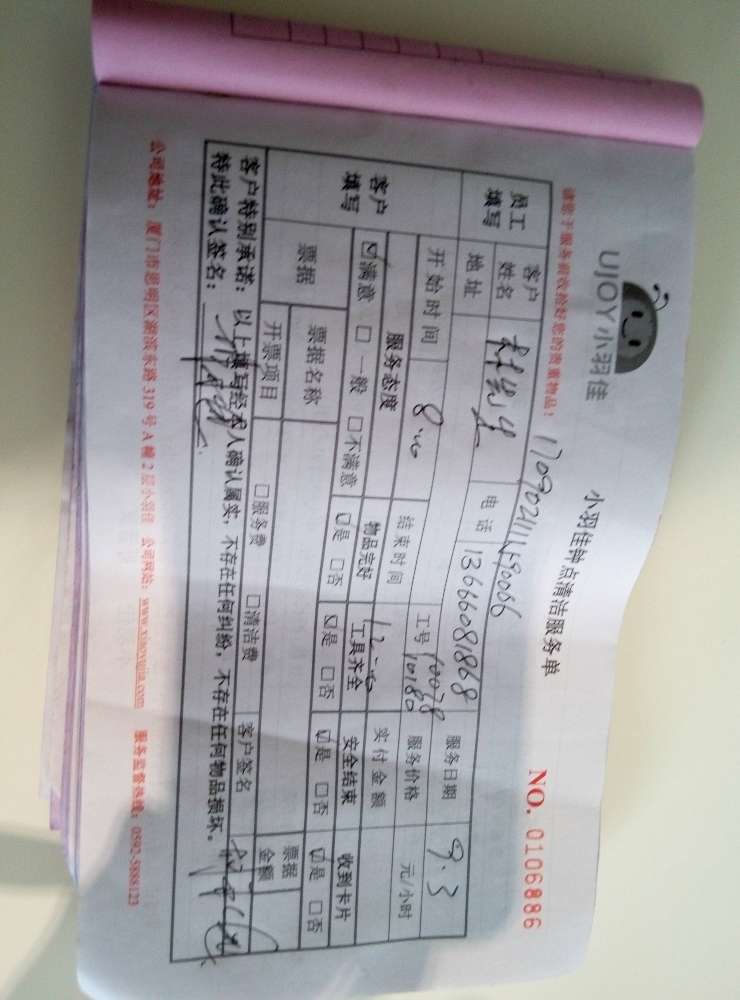 UJOY小羽佳
小羽佳钟点清洁服务单
NO. 0106886
请您于服务前收拾好您的贵重物品!
员工填写 客户姓名 林先生 电话 13666081868 服务日期 9.3
地址 工号 服务价格 元/小时
客户填写 开始时间 8:00 结束时间 12:00 实付金额
服务态度 物品完好 工具齐全 安全结束 收到卡片
☑满意 □一般 □不满意 ☑是 □否 ☑是 □否 ☑是 □否 ☑是 □否
票据 票据名称 客户签名 票据金额
开票项目 □服务费 □清洁费
客户特别承诺:以上填写经本人确认属实,不存在任何纠纷,不存在任何物品损坏。
特此确认签名:
公司地址:厦门市思明区湖滨东路319号A幢2层小羽佳 公司网站:www.xiaoyujia.com 服务监督热线:0592-5888123